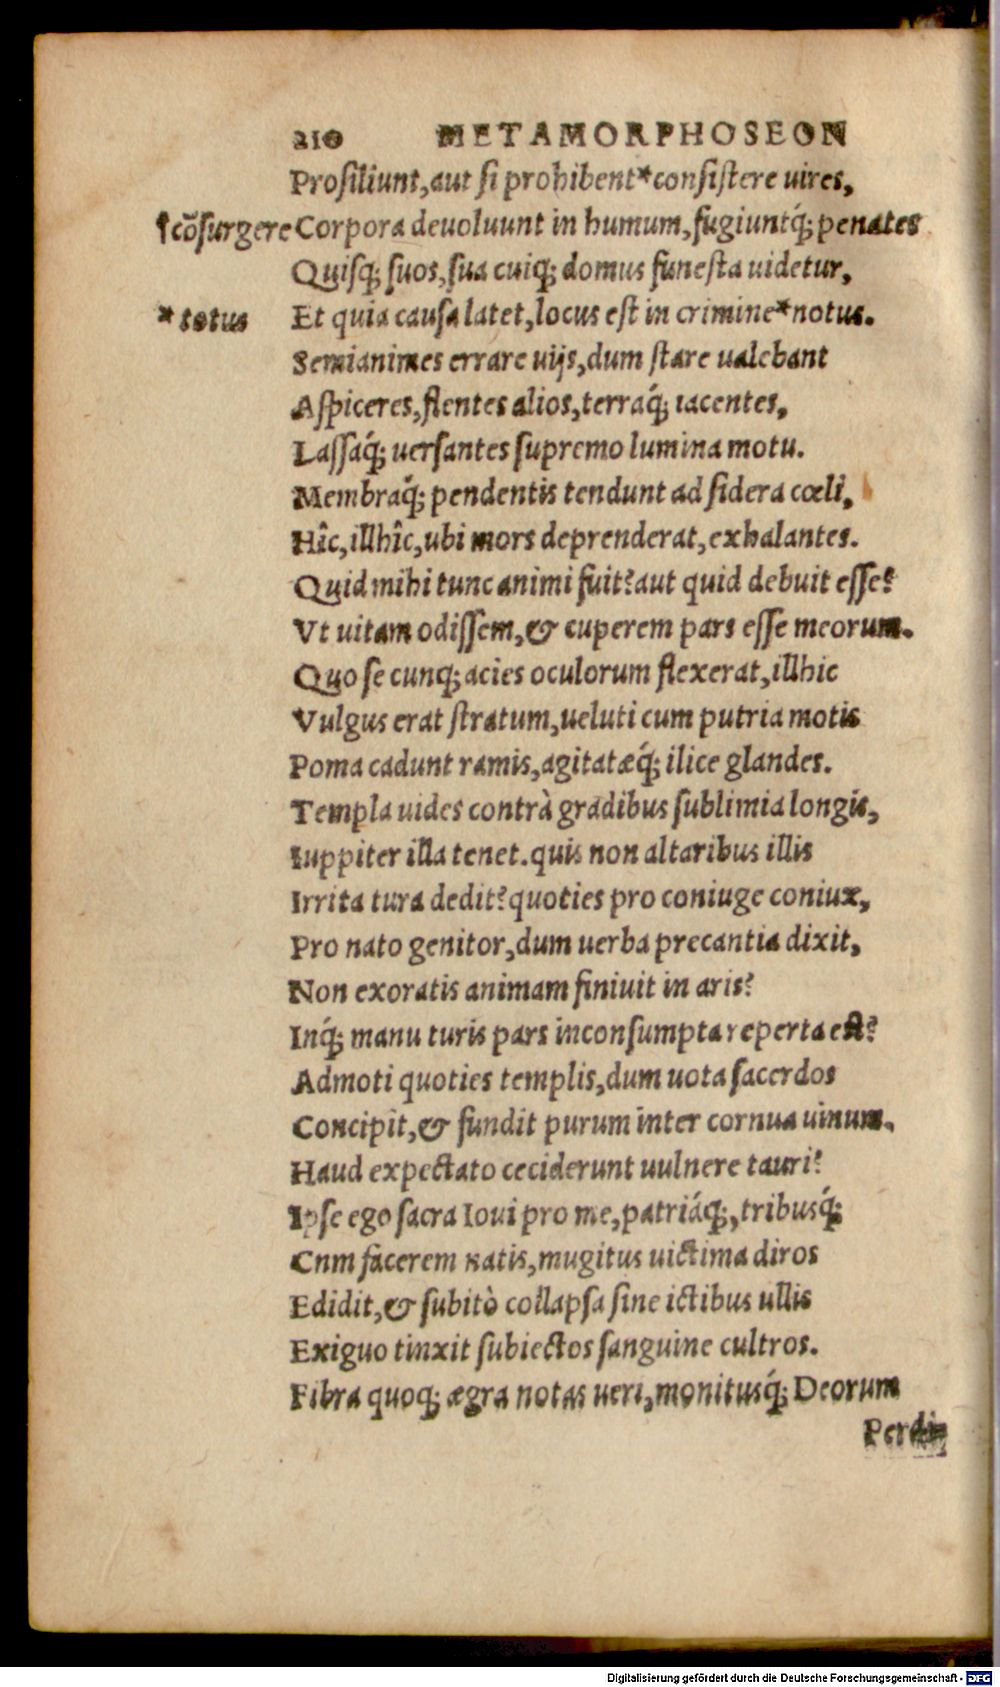 210 METAMORPHOSEON
Prosiliunt, aut si prohibent*consistere uires,
*cõsurgere Corpora deuoluunt in humum, fugiuntq́; penates
Quisq; suos, sua cuiq; domus funesta uidetur,
*totus Et quia causa latet, locus est in crimine*notus.
Semianimes errare uijs, dum stare ualebant
Aspiceres, flentes alios, terraq́; iacentes,
Lassaq́; uersantes supremo lumina motu.
Membraq́; pendentis tendunt ad sidera cœli,
Hîc, illhîc, ubi mors deprenderat, exhalantes.
Quid mihi tunc animi fuit? aut quid debuit esse?
Vt uitam odissem, & cuperem pars esse meorum.
Quo se cunq; acies oculorum flexerat, illhic
Vulgus erat stratum, ueluti cum putria motis
Poma cadunt ramis, agitatæq́; ilice glandes.
Templa uides contrà gradibus sublimia longis,
Iuppiter illa tenet. quis non altaribus illis
Irrita tura dedit? quoties pro coniuge coniux,
Pro nato genitor, dum uerba precantia dixit,
Non exoratis animam finiuit in aris?
Inq́; manu turis pars inconsumpta reperta est?
Admoti quoties templis, dum uota sacerdos
Concipit, & fundit purum inter cornua uinum.
Haud expectato ceciderunt uulnere tauri?
Ipse ego sacra Ioui pro me, patriáq;, tribusq́;
Cnm facerem natis, mugitus uictima diros
Edidit, & subitò collapsa sine ictibus ullis
Exiguo tinxit subiectos sanguine cultros.
Fibra quoq; ægra notas ueri, monitusq́; Deorum
Perdi=
Digitalisierung gefördert durch die Deutsche Forschungsgemeinschaft - DFG